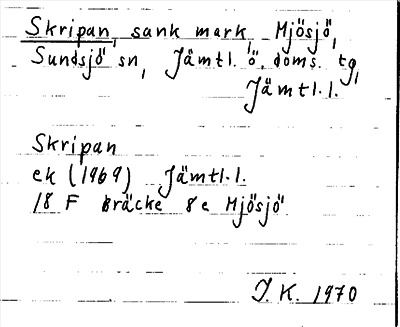 Skripan, sank mark, Mjösjö,
Sundsjö sn, Jämtl. ö. doms. tg,
Jämtl. l.
Skripan
ek (1969) Jämtl. l.
18 F Bräcke 8e Mjösjö
J. K. 1970